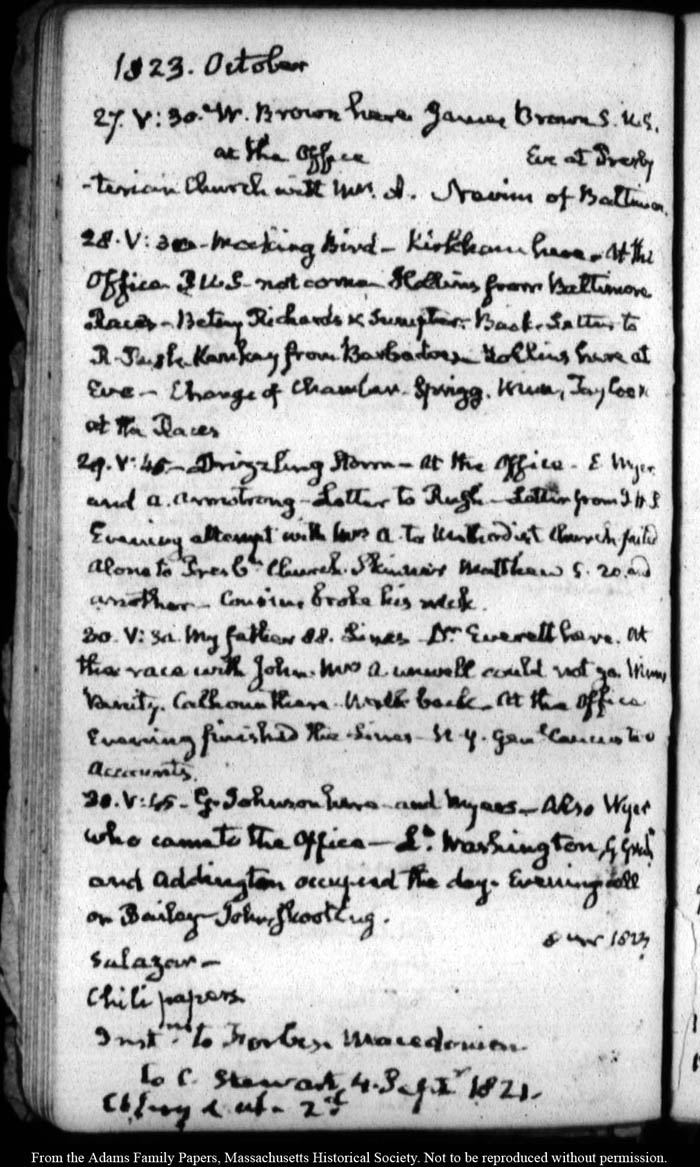 1823. October
27. V: 30. W. Brown here James Brown S. U.S.
at the Office Eve at Presby
-terian Church with Mrs. A. Nevins of Baltimore.
28. V: 30 - Mocking Bird - Kirkham here - At the
Office P U S - not come - Hollins from Baltimore
Races - Betsy Richards & Sumpter. Back. Letter to
R. Rush. from Barbadoes - Hollins here at
Eve - Change of Chamber - Sprigg. Taylor
at the Races
29. V: 45 - Drizzling Storm - At the Office - E. Wyer
and A. Armstrong - Letter to Rush - Letter from
Evening attempt with Mrs A. to Methodist Church failed
alone to Presbn. Church. Skinner Matthew 5. 20. and
another - Cousins broke his neck.
30. V: 30. My father 88. Lines - Dr. Everett here. At
the race with John. Mrs A unwell could not go.
Vanity. Calhoun there. Walk back. At the Office
Evening finished the Lines - N. Y. Genl.
Accounts.
30. V: 45 - G. Johnson here - and Myers - Also Wyer
who came to the Office - L. Washington, G
and Addington occupied the day. Evening call
on Bailey - John shooting.
1823
Salazar -
Chili papers
Instns. to Forbes. Macedonian
to C. Stewart 4. Sept 1821.
2d